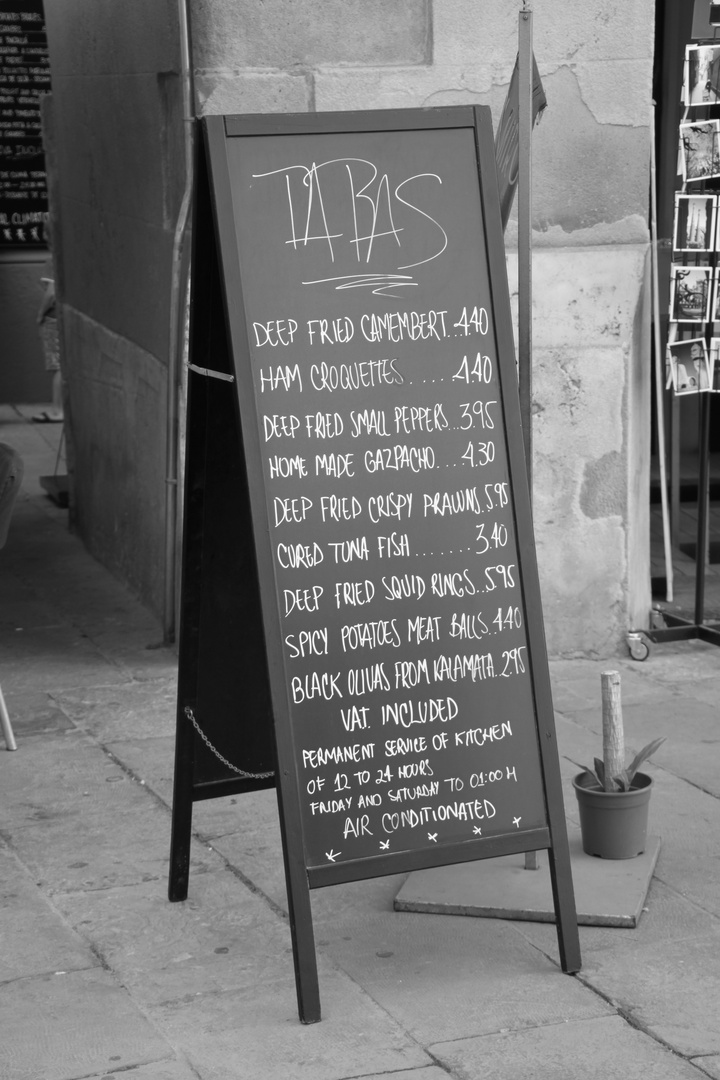 TAPAS
DEEP FRIED CAMEMBERT..4.40
HAM CROQUETTES.....4.40
DEEP FRIED SMALL PEPPERS...3.95
HOME MADE GAZPACHO....4.30
DEEP FRIED CRISPY PRAWNS.5.95
CURED TUNA FISH.......3.40
DEEP FRIED SQUID RINGS..5.95
SPICY POTATOES MEAT BALLS..4.40
BLACK OLIVAS FROM KALAMATA..2.95
VAT. INCLUDED
PERMANENT SERVICE OF KITCHEN
OF 12 TO 24 HOURS
FRIDAY AND SATURDAY TO 01:00 H
AIR CONDITIONATED